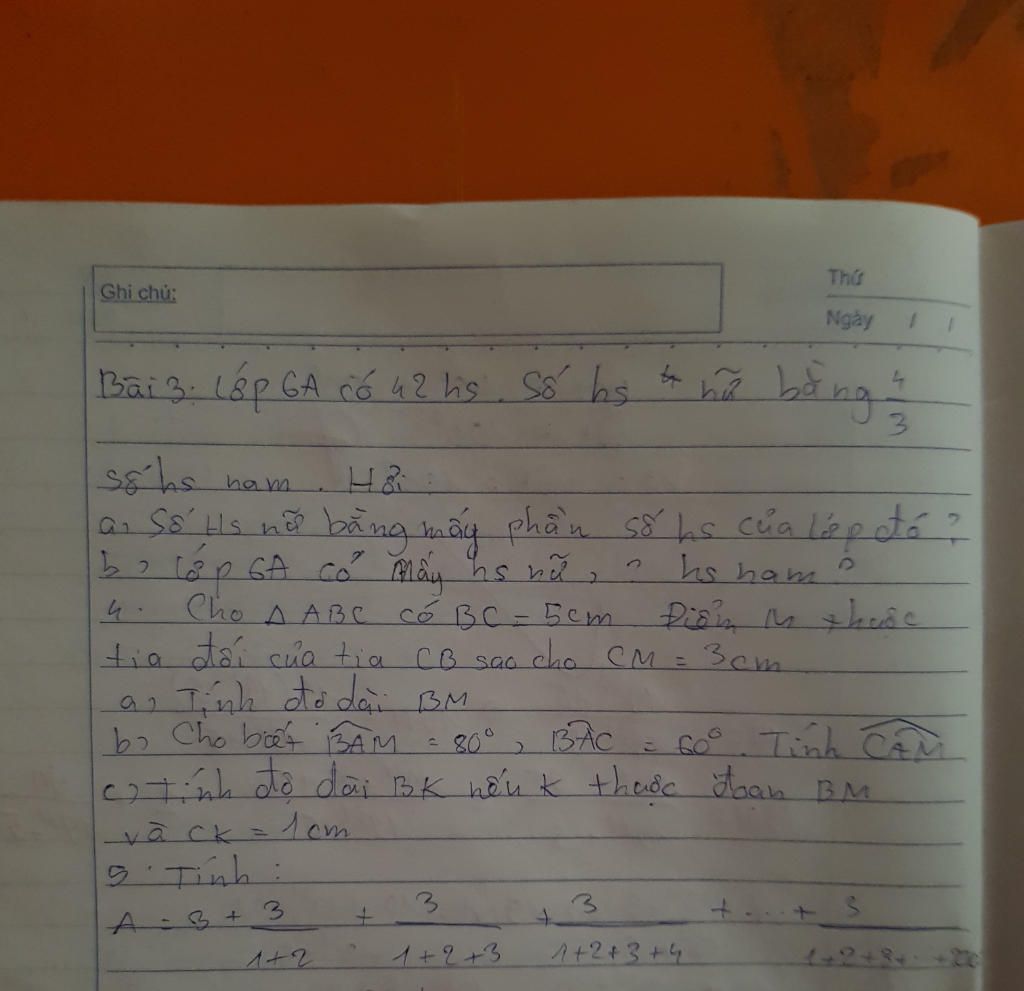 Ghi chú:
Thứ
Ngày / /
Bài 3: Lớp 6A có 42 hs. Số hs nữ bằng 4/3
số hs nam. Hỏi:
a, Số Hs nữ bằng mấy phần số hs của lớp đó?
b, Lớp 6A có mấy hs nữ, ? hs nam?
4. Cho △ ABC có BC = 5cm. Điểm M thuộc
tia đối của tia CB sao cho CM = 3cm
a, Tính độ dài BM
b, Cho biết BAM = 80°, BAC = 60°. Tính CAM
c, Tính độ dài BK nếu K thuộc đoạn BM
và CK = 1cm
5. Tính:
A = 3 + 3/1+2 + 3/1+2+3 + 3/1+2+3+4 + ... + 3/1+2+3+..+